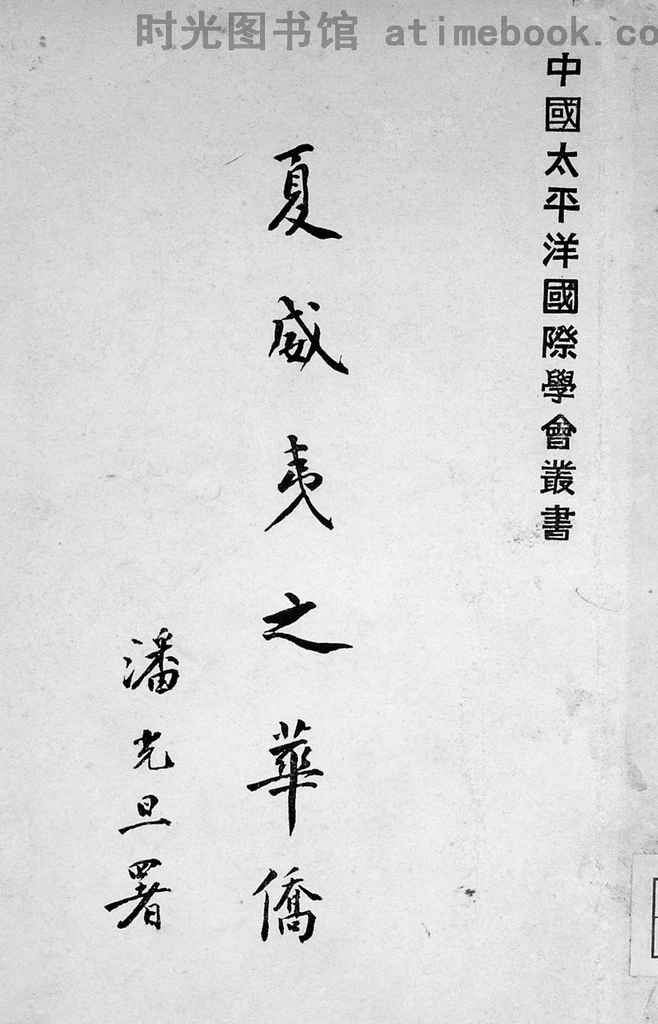 时光图书馆 atimebook.co
中國太平洋國際學會叢書
夏威夷之華僑
潘光旦署